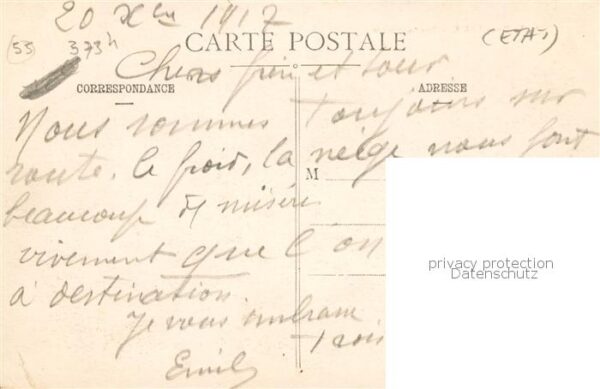 20 Xbre 1917
(55) 373h (ETAT)
CARTE POSTALE
Chers frère et sœur
CORRESPONDANCE ADRESSE
Nous sommes toujours sur
route, le froid, la neige nous font
M
beaucoup de misère
vivement que l'on
à destination.
Je vous embrasse
trois
Emile
privacy protection
Datenschutz